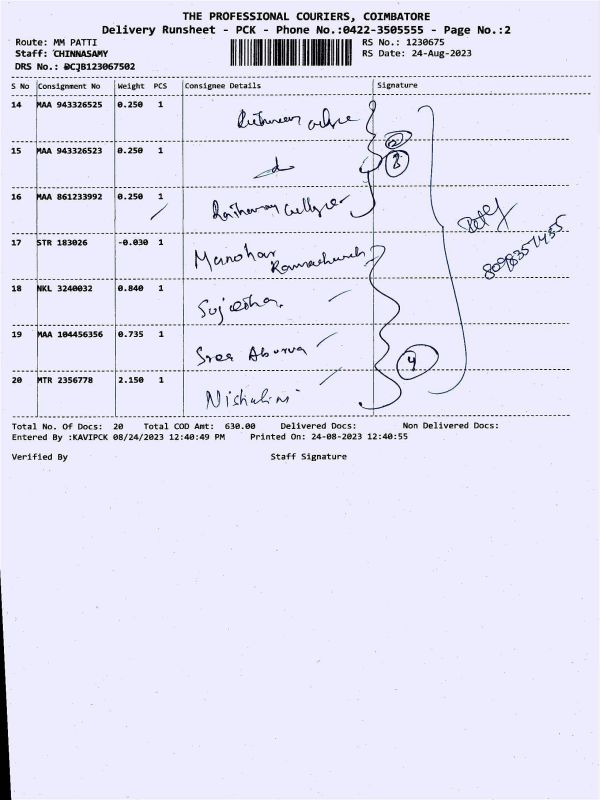 THE PROFESSIONAL COURIERS, COIMBATORE
Delivery Runsheet - PCK - Phone No.:0422-3505555 - Page No.:2
Route: MM PATTI RS No.: 1230675
Staff: CHINNASAMY RS Date: 24-Aug-2023
DRS No.: DCJB123067502
S No Consignment No Weight PCS Consignee Details Signature
14 MAA 943326525 0.250 1
15 MAA 943326523 0.250 1
16 MAA 861233992 0.250 1
17 STR 183026 -0.030 1 Manohar
18 NKL 3240032 0.840 1
19 MAA 104456356 0.735 1 Sree
4
20 MTR 2356778 2.150 1 Nishalini
Total No. Of Docs: 20 Total COD Amt: 630.00 Delivered Docs: Non Delivered Docs:
Entered By :KAVIPCK 08/24/2023 12:40:49 PM Printed On: 24-08-2023 12:40:55
Verified By Staff Signature